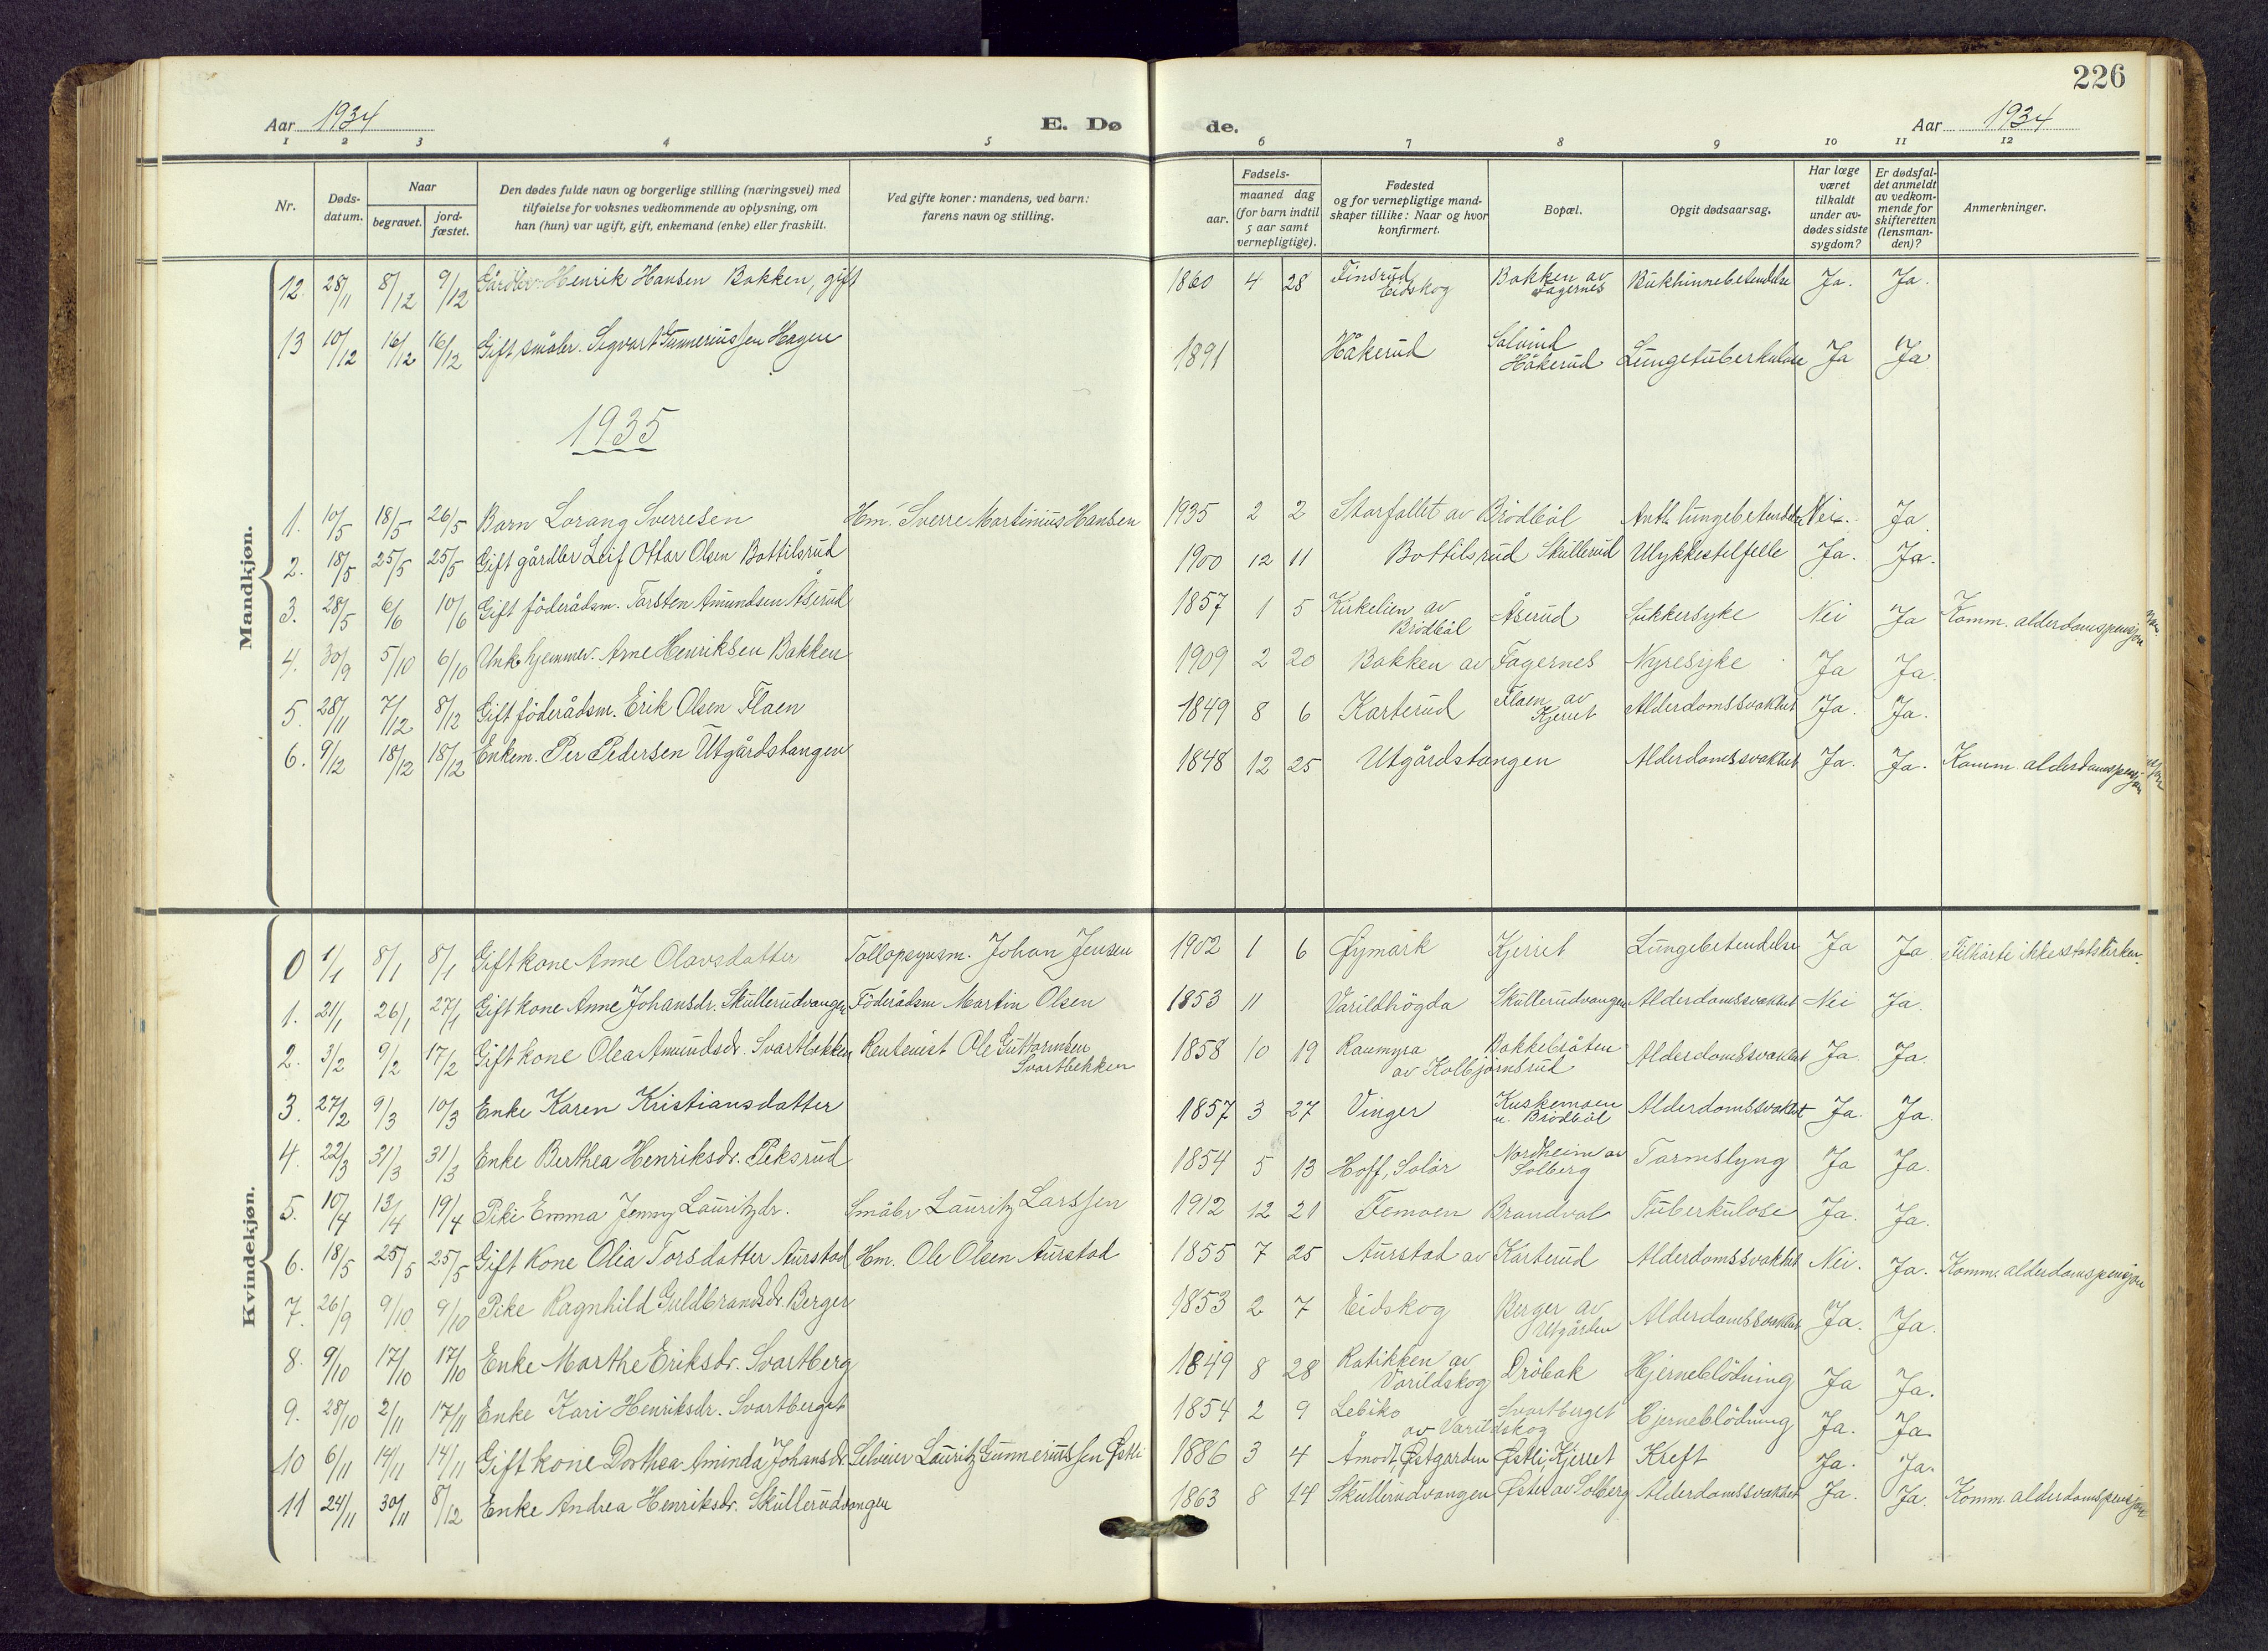 226
Aar 1934
E. Dø
de.
Aar 1934
1 2 3 4 5 6 7 8 9 10 11 12
Nr.
Døds-
datum.
Naar
begravet.
jord-
fæstet.
Den dødes fulde navn og borgerlige stilling (næringsvei) med
tilføielse for voksnes vedkommende av oplysning, om
han (hun) var ugift, gift, enkemand (enke) eller fraskilt.
Ved gifte koner: mandens, ved barn:
farens navn og stilling.
Fødsels-
aar.
maaned dag
(for barn indtil
5 aar samt
vernepligtige).
Fødested
og for vernepligtige mand-
skaper tillike: Naar og hvor
konfirmert.
Bopæl.
Opgit dødsaarsag.
Har læge
været
tilkaldt
under av-
dødes sidste
sygdom?
Er dødsfal-
det anmeldt
av vedkom-
mende for
skifteretten
(lensman-
den)?
Anmerkninger.
Mandkjøn.
12. 28/11 8/12 9/12 Gårdbr. Henrik Hansen Bakken, gift 1860 4 28 Finsrud Eidskog Bakken av Fagernes Bukhinnebetendelse Ja. Ja.
13 10/12 16/12 16/12 Gift småbr. Sigvart Gunneriussen Hagen 1891 Håkerud Solvind Håkerud Lungetuberkulose Ja Ja
1935
1. 10/5 18/5 26/5 Barn Lorang Sverresen Hm. Sverre Martinius Hansen 1935 2 2 Storfallet av Brödböl Antl. lungebetendelse Nei. Ja
2. 18/5 25/5 25/5 Gift gårdbr Leif Ottar Olsen Bottilsrud 1900 12 11 Bottilsrud Skullerud Ulykkestilfelle Ja. Ja.
3. 28/5 6/6 10/6 Gift föderådsm. Torsten Amundsen Åserud 1857 1 5 Kirkelien av Brödböl Åserud Sukkersyke Nei Ja Komm. alderdomspensjon
4. 30/9 5/10 6/10 Unk. hjemmev. Arne Henriksen Bakken 1909 2 20 Bakken av Fagernes Nyresyke Ja Ja.
5. 28/11 7/12 8/12 Gift föderådsm. Erik Olsen Flaen 1849 8 6 Karterud Flaen av Kjerret Alderdomssvakhet Ja. Ja.
6. 9/12 18/12 18/12 Enkem. Per Pedersen Utgårdstangen 1848 12 25 Utgårdstangen Alderdomssvakhet Ja. Ja. Komm. alderdomspensjon
Kvindekjøn.
0 1/1 8/1 8/1 Gift kone Anne Olavsdatter Tollopsynsm. Johan Jensen 1902 1 6 Øymark Kjerret Lungebetendelse Ja Ja Tilhørte ikke statskirken.
1. 21/1 26/1 27/1 Gift kone Anne Johansdr. Skullerudvangen Föderådsm Martin Olsen 1853 11 Varildhögda Skullerudvangen Alderdomssvakhet Nei Ja.
2. 3/2 9/2 17/2 Gift kone Olea Amundsdr. Svartbekken Rentenist Ole Guttormsen Svartbekken 1858 10 19 Raumyra av Kolbjörnsrud Bakkebråten Alderdomssvakhet Ja. Ja.
3. 27/2 9/3 10/3 Enke Karen Kristiansdatter 1857 3 27 Vinger Kuskemoen u. Brödböl Alderdomssvakhet Ja. Ja.
4. 22/3 31/3 31/3 Enke Berthea Henriksdr. Peksrud 1854 5 13 Hoff, Solör Nordheim av Solberg Tarmslyng Ja Ja.
5. 10/4 13/4 19/4 Pike Emma Jenny Lauritzdr. Småbr Lauritz Larssen 1912 12 21 Femoen Brandval Tuberkulose Ja. Ja.
6. 18/5 25/5 25/5 Gift kone Olia Torsdatter Aurstad Hm. Ole Olsen Aurstad 1855 7 25 Aurstad av Karterud Alderdomssvakhet Nei. Ja. Komm. alderdomspensjon
7. 26/9 9/10 9/10 Pike Ragnhild Guldbrandsdr. Berger 1853 2 7 Eidskog Berger av Utgården Alderdomssvakhet Ja. Ja.
8. 9/10 17/10 17/10 Enke Marthe Eriksdr. Svartberg 1849 8 28 Ratikken av Varildskog Dröbak Hjerneblödning Ja Ja.
9. 28/10 2/11 17/11 Enke Kari Henriksdr. Svartberget 1854 2 9 Lebiko av Varildskog Svartberget Hjerneblödning Ja. Ja
10 6/11 14/11 14/11 Gift kone Dorthea Aminda Johansdr. Selveier Lauritz Gunneriussen Østli 1886 3 4 Åmodt, Østgarden Østli, Kjerret Kreft Ja. Ja.
11 24/11 30/11 8/12 Enke Andrea Henriksdr. Skullerudvangen 1863 8 14 Skullerudvangen Øster av Solberg Alderdomssvakhet Ja. Ja. Komm. alderdomspensjon